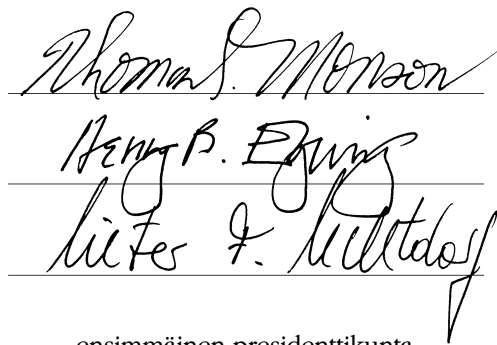 Thomas S. Monson
Henry B. Eyring
Dieter F. Uchtdorf
ensimmäinen presidenttikunta